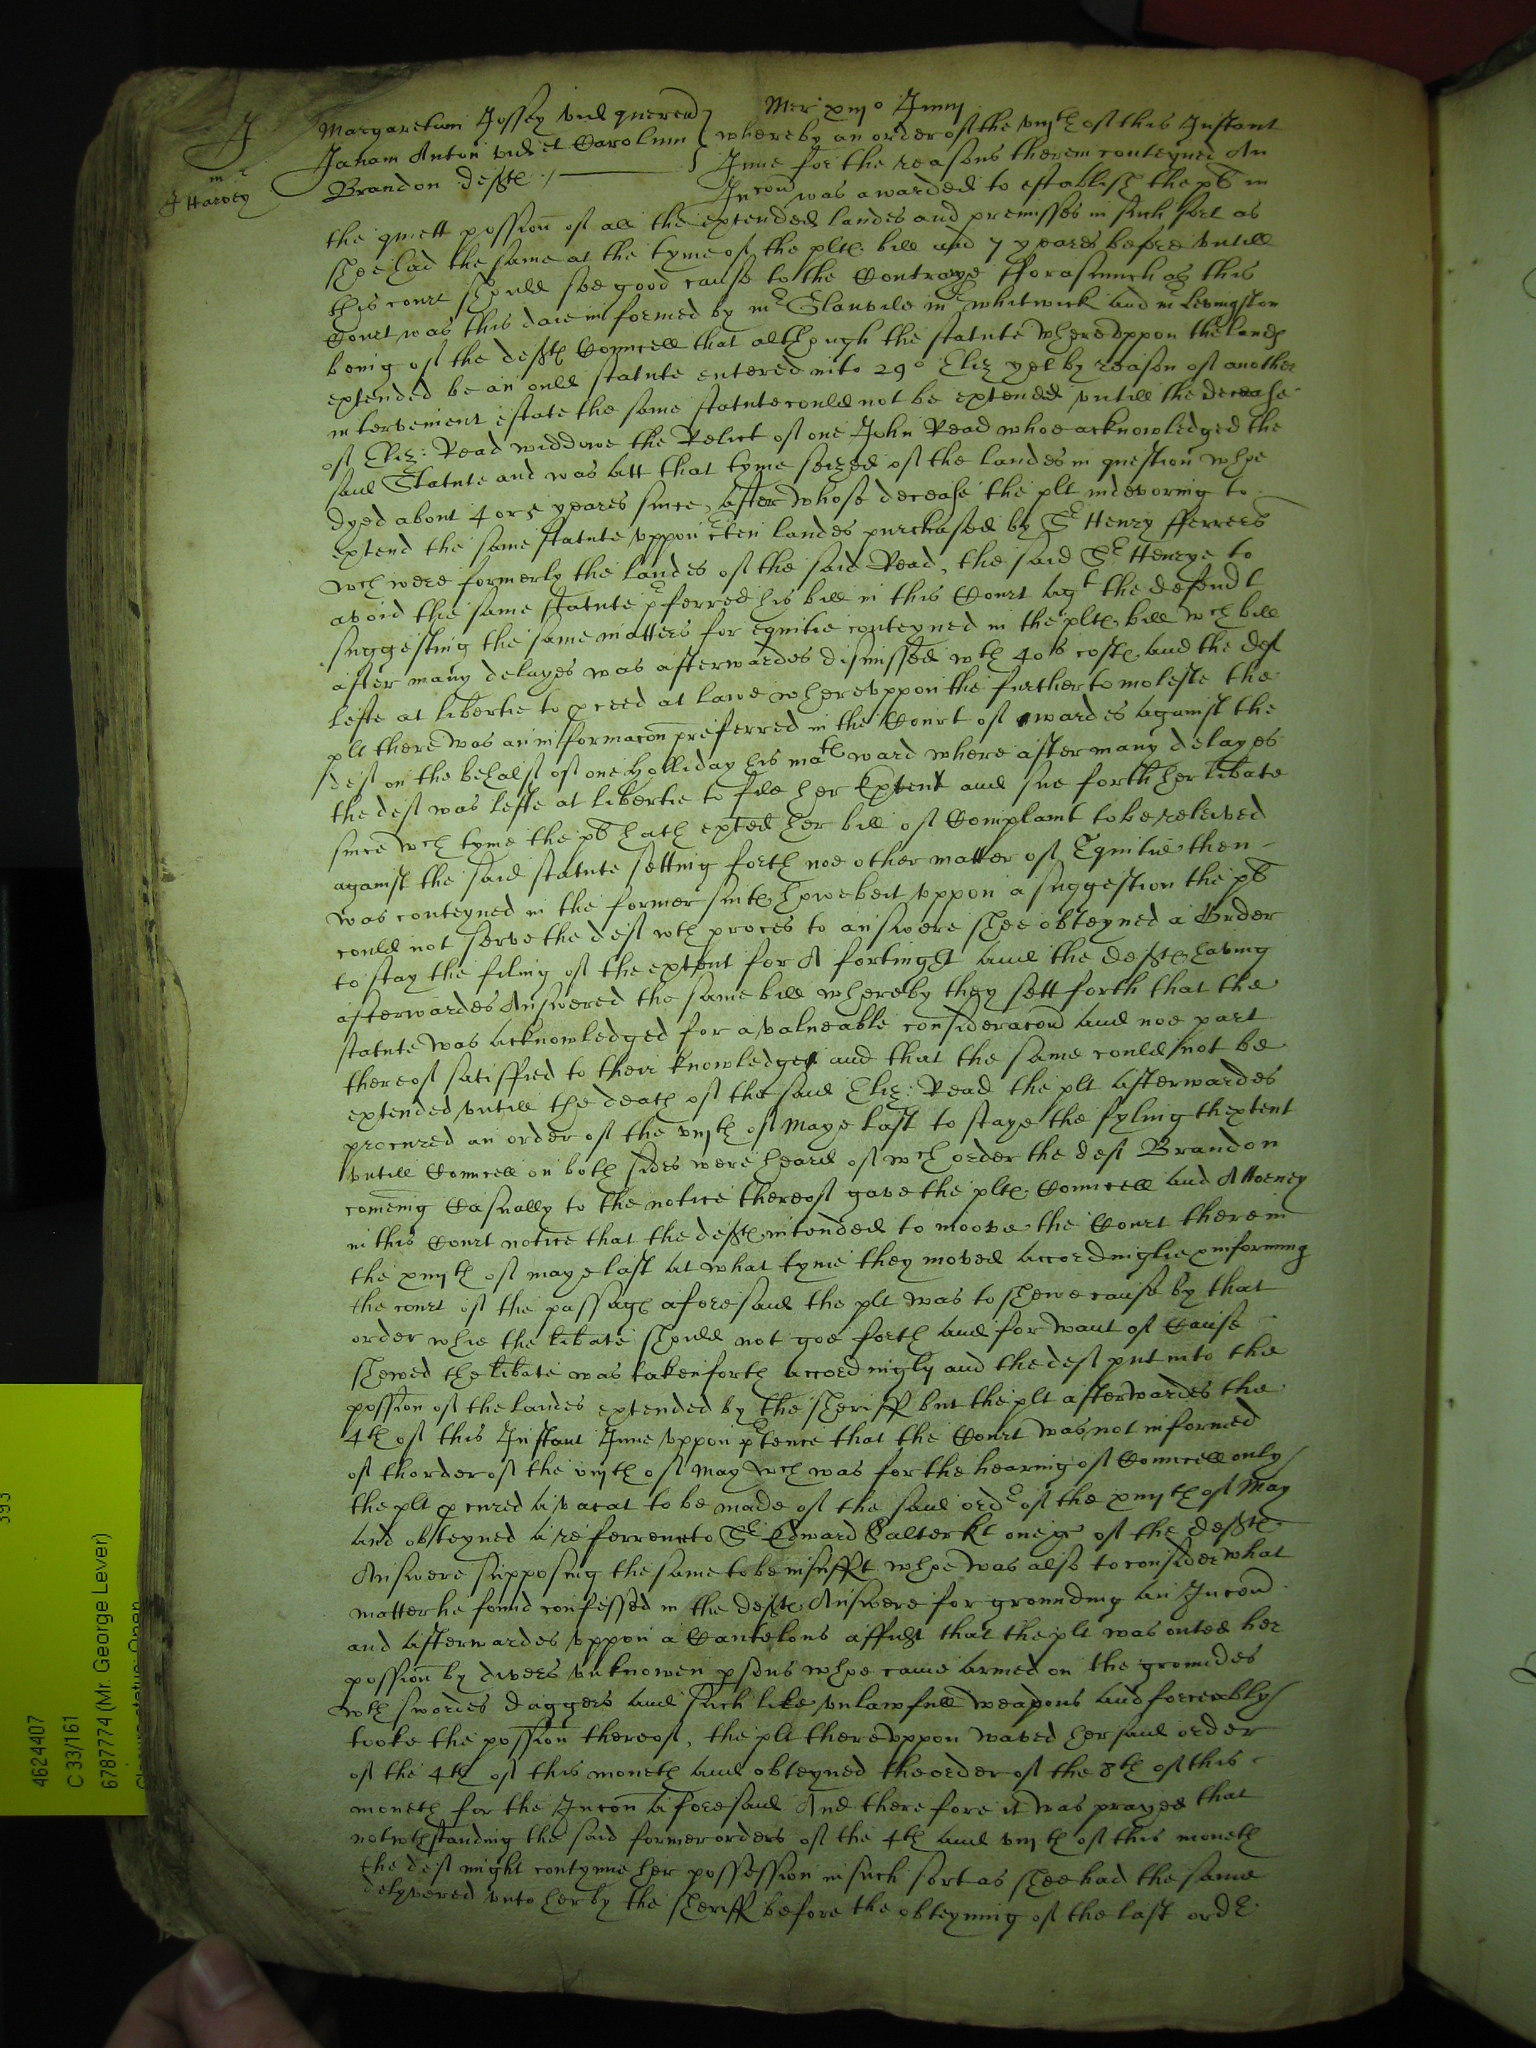 J
mr
Harvey
Margaretam Jossey vid querend
Janam Anton vid et Carolum
Brandon defte /
Mer xiiijo Junij
whereby an order of the viijth of this Instant
June for the reasons therein conteyned An
Iniuncon was awarded to establish the plt in
the quiett possion of all the extended landes and premisses in such sort as
shee had the same at the tyme of the plts bill and 7 yeares before vntill
this court should see good cause to the Contrarye fforasmuch as this
Court was this daie informed by mr Glanvile mr Whitwick and mr Levingston
being of the defts Councell that although the statute wherevppon the lands
extended be an ould statute entered into 29o Eliz yet by reason of another
intervenient estate the same statute could not be extended vntill the decease
of Eliz: Read widdowe the Relict of one John Read whoe acknowledged the
said Statute and was att that tyme seized of the landes in question whoe
dyed about 4 or 5 yeares since, After whose decease the plt indevoring to
extend the same statute vppon certen landes purchased by Sr Henry fferrers
wch were formerly the landes of the said Read, the said Sr Henrye to
avoid the same statute pferred his bill in this Court agt the defendt
suggesting the same matters for equitie conteyned in the plts bill wch bill
after many delayes was afterwardes dismissed wth 40s costs and the deft
lefte at libertie to pceed at lawe wherevppon the further to moleste the
plt there was an informacon preferred in the Court of wardes against the
deft on the behalf of one Holliday his mats ward where after many delayes
the deft was lefte at libertie to file her Extent and sue forth her libate
since wch tyme the plt hath exhted her bill of Complaint to be releived
against the said statute setting forth noe other matter of Equitie then
was conteyned in the former suite, howebeit vppon a suggestion the plt
could not serve the deft wth proces to answere shee obteyned a Order
to stay the filing of the extent for A fortinght and the defts having
afterwardes Answered the same bill whereby they sett forth that the
statute was acknowledged for a valueable consideracon and noe part
thereof satisfied to their knowledges and that the same could not be
extended vntill the death of the said Eliz: Read the plt afterwardes
procured an order of the viijth of Maye last to staye the fyling thextent
vntill Councell on both sides were heard of wch order the deft Brandon
coming Casually to the notice thereof gave the plts Councell and Attorney
in this Court notice that the defts intended to moove the Court therein
the xiiijth of maye last at what tyme they moved accordinglie informing
the court of the passage aforesaid the plt was to shewe cause by that
order whie the libate should not goe forth and for want of Cause
shewed the libate was taken forth accordingly and the deft put into the
possion of the landes extended by the sheriff but the plt afterwardes the
4th of this Instant June vppon ptence that the Court was not informed
of thorder of the viijth of May wch was for the hearing of Councell only
the plt pcured a vacat to be made of the said order of the xiiijth of May
and obteyned a referrence to Sr Edward Salter kt one &c of the defts
Answere supposing the same to be insufft whoe was also to consider what
matter he found confessed in the defts Answere for grounding an Iniuncon
and afterwardes vppon a Cautelous affidt that the plt was outed her
possion by divers vnknowen psons whoe came armed on the groundes
wth swordes daggers and such like vnlawfull weapons and forceably
tooke the possion thereof, the plt therevppon waved her said order
of the 4th of this moneth and obteyned the order of the 8th of this
moneth for the Iniuncon aforesaid And therefore it was prayed that
notwthstanding the said former orders of the 4th and viijth of this moneth
the deft might contynue her possession in such sort as shee had the same
delyvered vnto her by the sheriff before the obteyning of the last order
393
4624407
C 33/161
6787774 (Mr. George Lever)
Closure status: Open